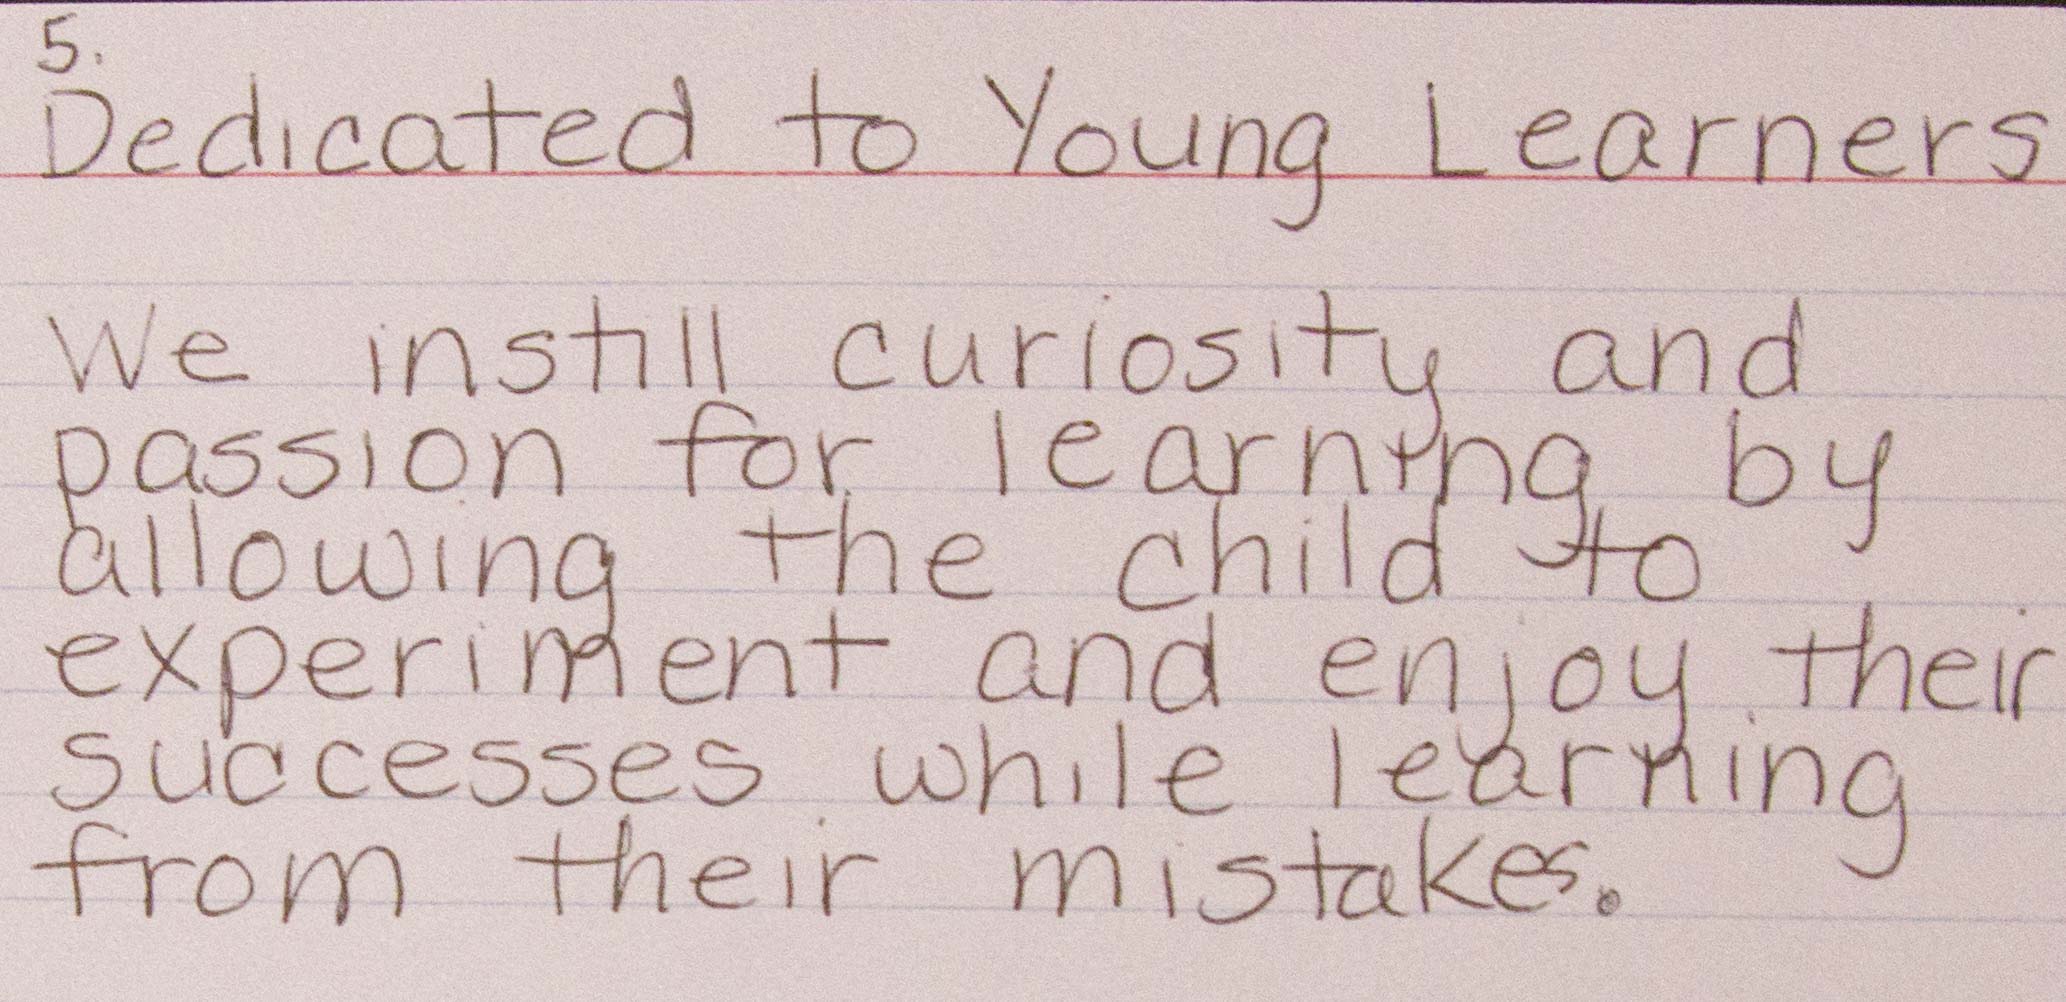 5.
Dedicated to Young Learners
We instill curiosity and
passion for learning by
allowing the child to
experiment and enjoy their
successes while learning
from their mistakes.